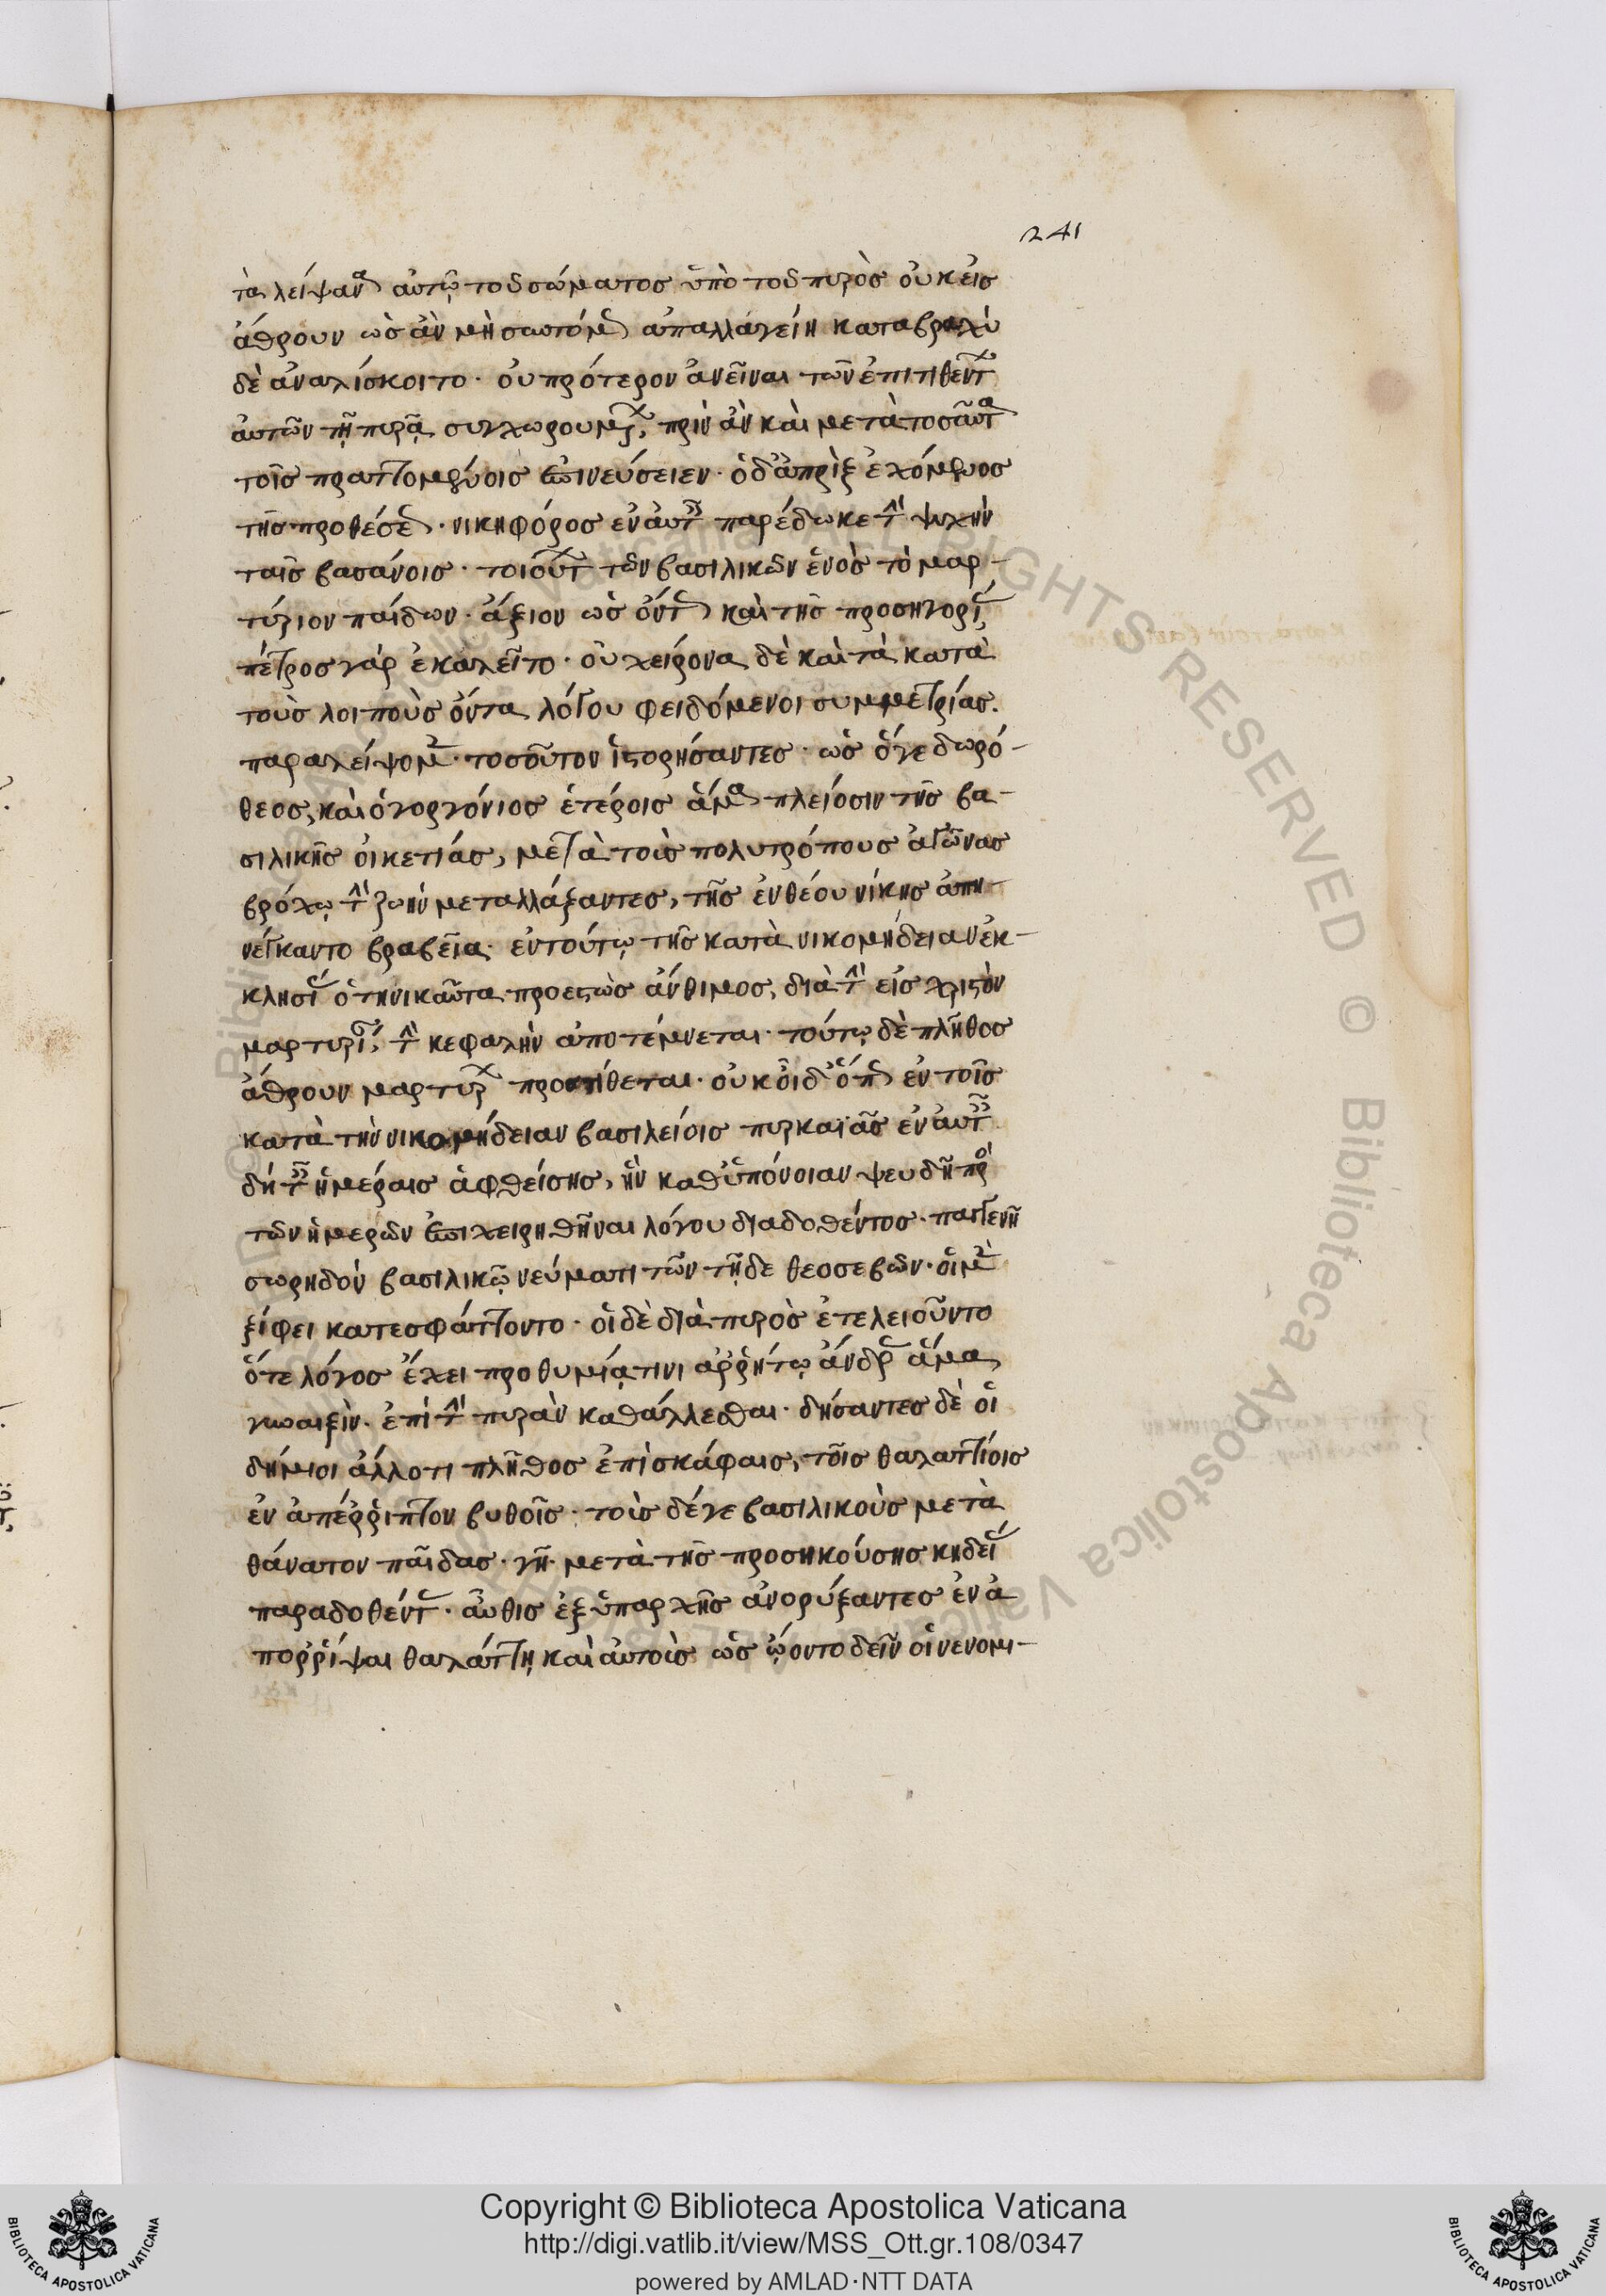 241
τὰ λείψανα αὐτῷ τοῦ σώματος ὑπὸ τοῦ πυρὸς οὐκ εἰς
ἄθρουν ὡς ἂν μὴ σύντομον ἀπαλλαγείη κατὰ βραχὺ
δὲ ἀναλίσκοιτο· οὐ πρότερον ἀνεῖναι τῶν ἐπιτιθέντων
αὐτὸν τῇ πυρᾷ συγχωρουμένων, πρὶν ἂν καὶ μετὰ τοσαῦτα
τοῖς πραττομένοις ἐπινεύσειεν· ὁ δ' ἀπρὶξ ἐχόμενος
τῆς προθέσεως· νικηφόρος ἐν αὐταῖς παρέδωκε τὴν ψυχὴν
ταῖς βασάνοις· τοιοῦτον τῶν βασιλικῶν ἑνὸς τὸ μαρ-
τύριον παίδων· ἄξιον ὡς ὄντως καὶ τῆς προσηγορίας,
πέτρος γὰρ ἐκαλεῖτο· οὐ χείρονα δὲ καὶ τὰ κατὰ
τοὺς λοιποὺς ὄντα λόγου φειδόμενοι συμμετρίας.
παραλείψομεν· τοσοῦτον ἱστορήσαντες· ὡς ὅγε δωρό-
θεος, καὶ ὁ γοργόνιος ἑτέροις ἅμα πλείοσιν τῆς βα-
σιλικῆς οἰκετίας, μετὰ τοὺς πολυτρόπους ἀγῶνας
βρόχῳ τὴν ζωὴν μεταλλάξαντες, τῆς ἐνθέου νίκης ἀπη-
νέγκαντο βραβεῖα· ἐν τούτῳ τῆς κατὰ νικομήδειαν ἐκ-
κλησίας ὁ τηνικαῦτα προεστὼς ἄνθιμος, διὰ τὴν εἰς χριστὸν
μαρτυρίαν, τὴν κεφαλὴν ἀποτέμνεται· τούτῳ δὲ πλῆθος
ἄθρουν μαρτύρων προστίθεται· οὐκ οἶδ' ὅπως ἐν τοῖς
κατὰ τὴν νικομήδειαν βασιλείοις πυρκαϊᾶς ἐν αὐταῖς
δὴ ταῖς ἡμέραις ἁφθείσης, ἣν καθ' ὑπόνοιαν ψευδῆ πρὸς
τῶν ἡμερῶν ἐπιχειρηθῆναι λόγου διαδοθέντος· παγγενῆ
σωρηδὸν βασιλικῷ νεύματι τῶν τῇδε θεοσεβῶν· οἱ μὲν
ξίφει κατεσφάττοντο· οἱ δὲ διὰ πυρὸς ἐτελειοῦντο
ὅτε λόγος ἔχει προθυμίᾳ τινι ἀρρήτῳ ἄνδρας ἅμα
γυναιξὶν· ἐπὶ τὴν πυρὰν καθάλλεσθαι· δήσαντες δὲ οἱ
δήμιοι ἄλλο τι πλῆθος ἐπὶ σκάφαις, τοῖς θαλαττίοις
ἐν ἀπέρριπτον βυθοῖς· τοὺς δέ γε βασιλικοὺς μετὰ
θάνατον παῖδας· γῇ μετὰ τῆς προσηκούσης κηδείας
παραδοθέντας· αὖθις ἐξ ὑπαρχῆς ἀνορύξαντες ἐν ἀ
πορρίψαι θαλάττῃ καὶ αὐτοὺς ὡς ᾤοντο δεῖν οἱ νενομι-
Copyright © Biblioteca Apostolica Vaticana
http://digi.vatlib.it/view/MSS_Ott.gr.108/0347
powered by AMLAD·NTT DATA